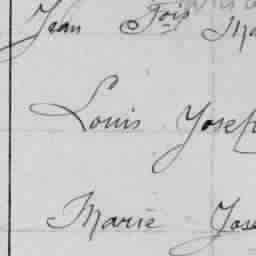 Jean Fois Ma
Louis Josep
Marie Jose